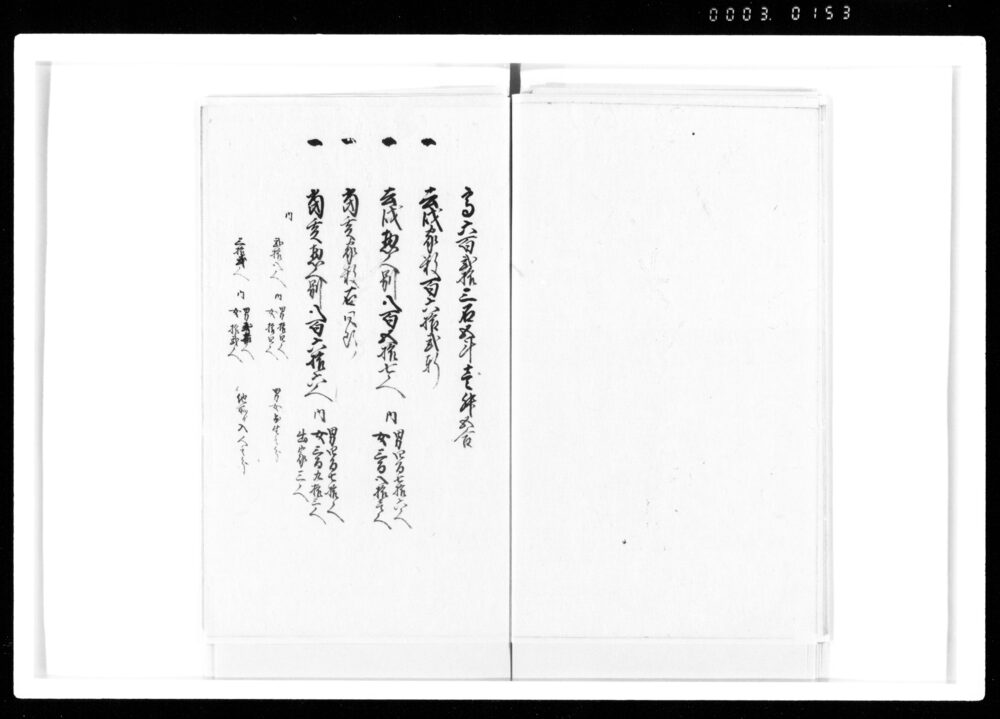 0003. 0153
高六百弐拾三石五斗壱升五合
一 去戌家数百六拾弐軒
一 去戌惣人別八百五拾七人 内
男四百七拾六人
女三百八拾壱人
一 当亥家数右同断
一 当亥惣人別八百六拾六人 内
男四百七拾人
女三百九拾三人
出家三人
内
内
男拾四人
女拾四人
男女出生
三拾弐人 内
女拾弐人
他所より入人